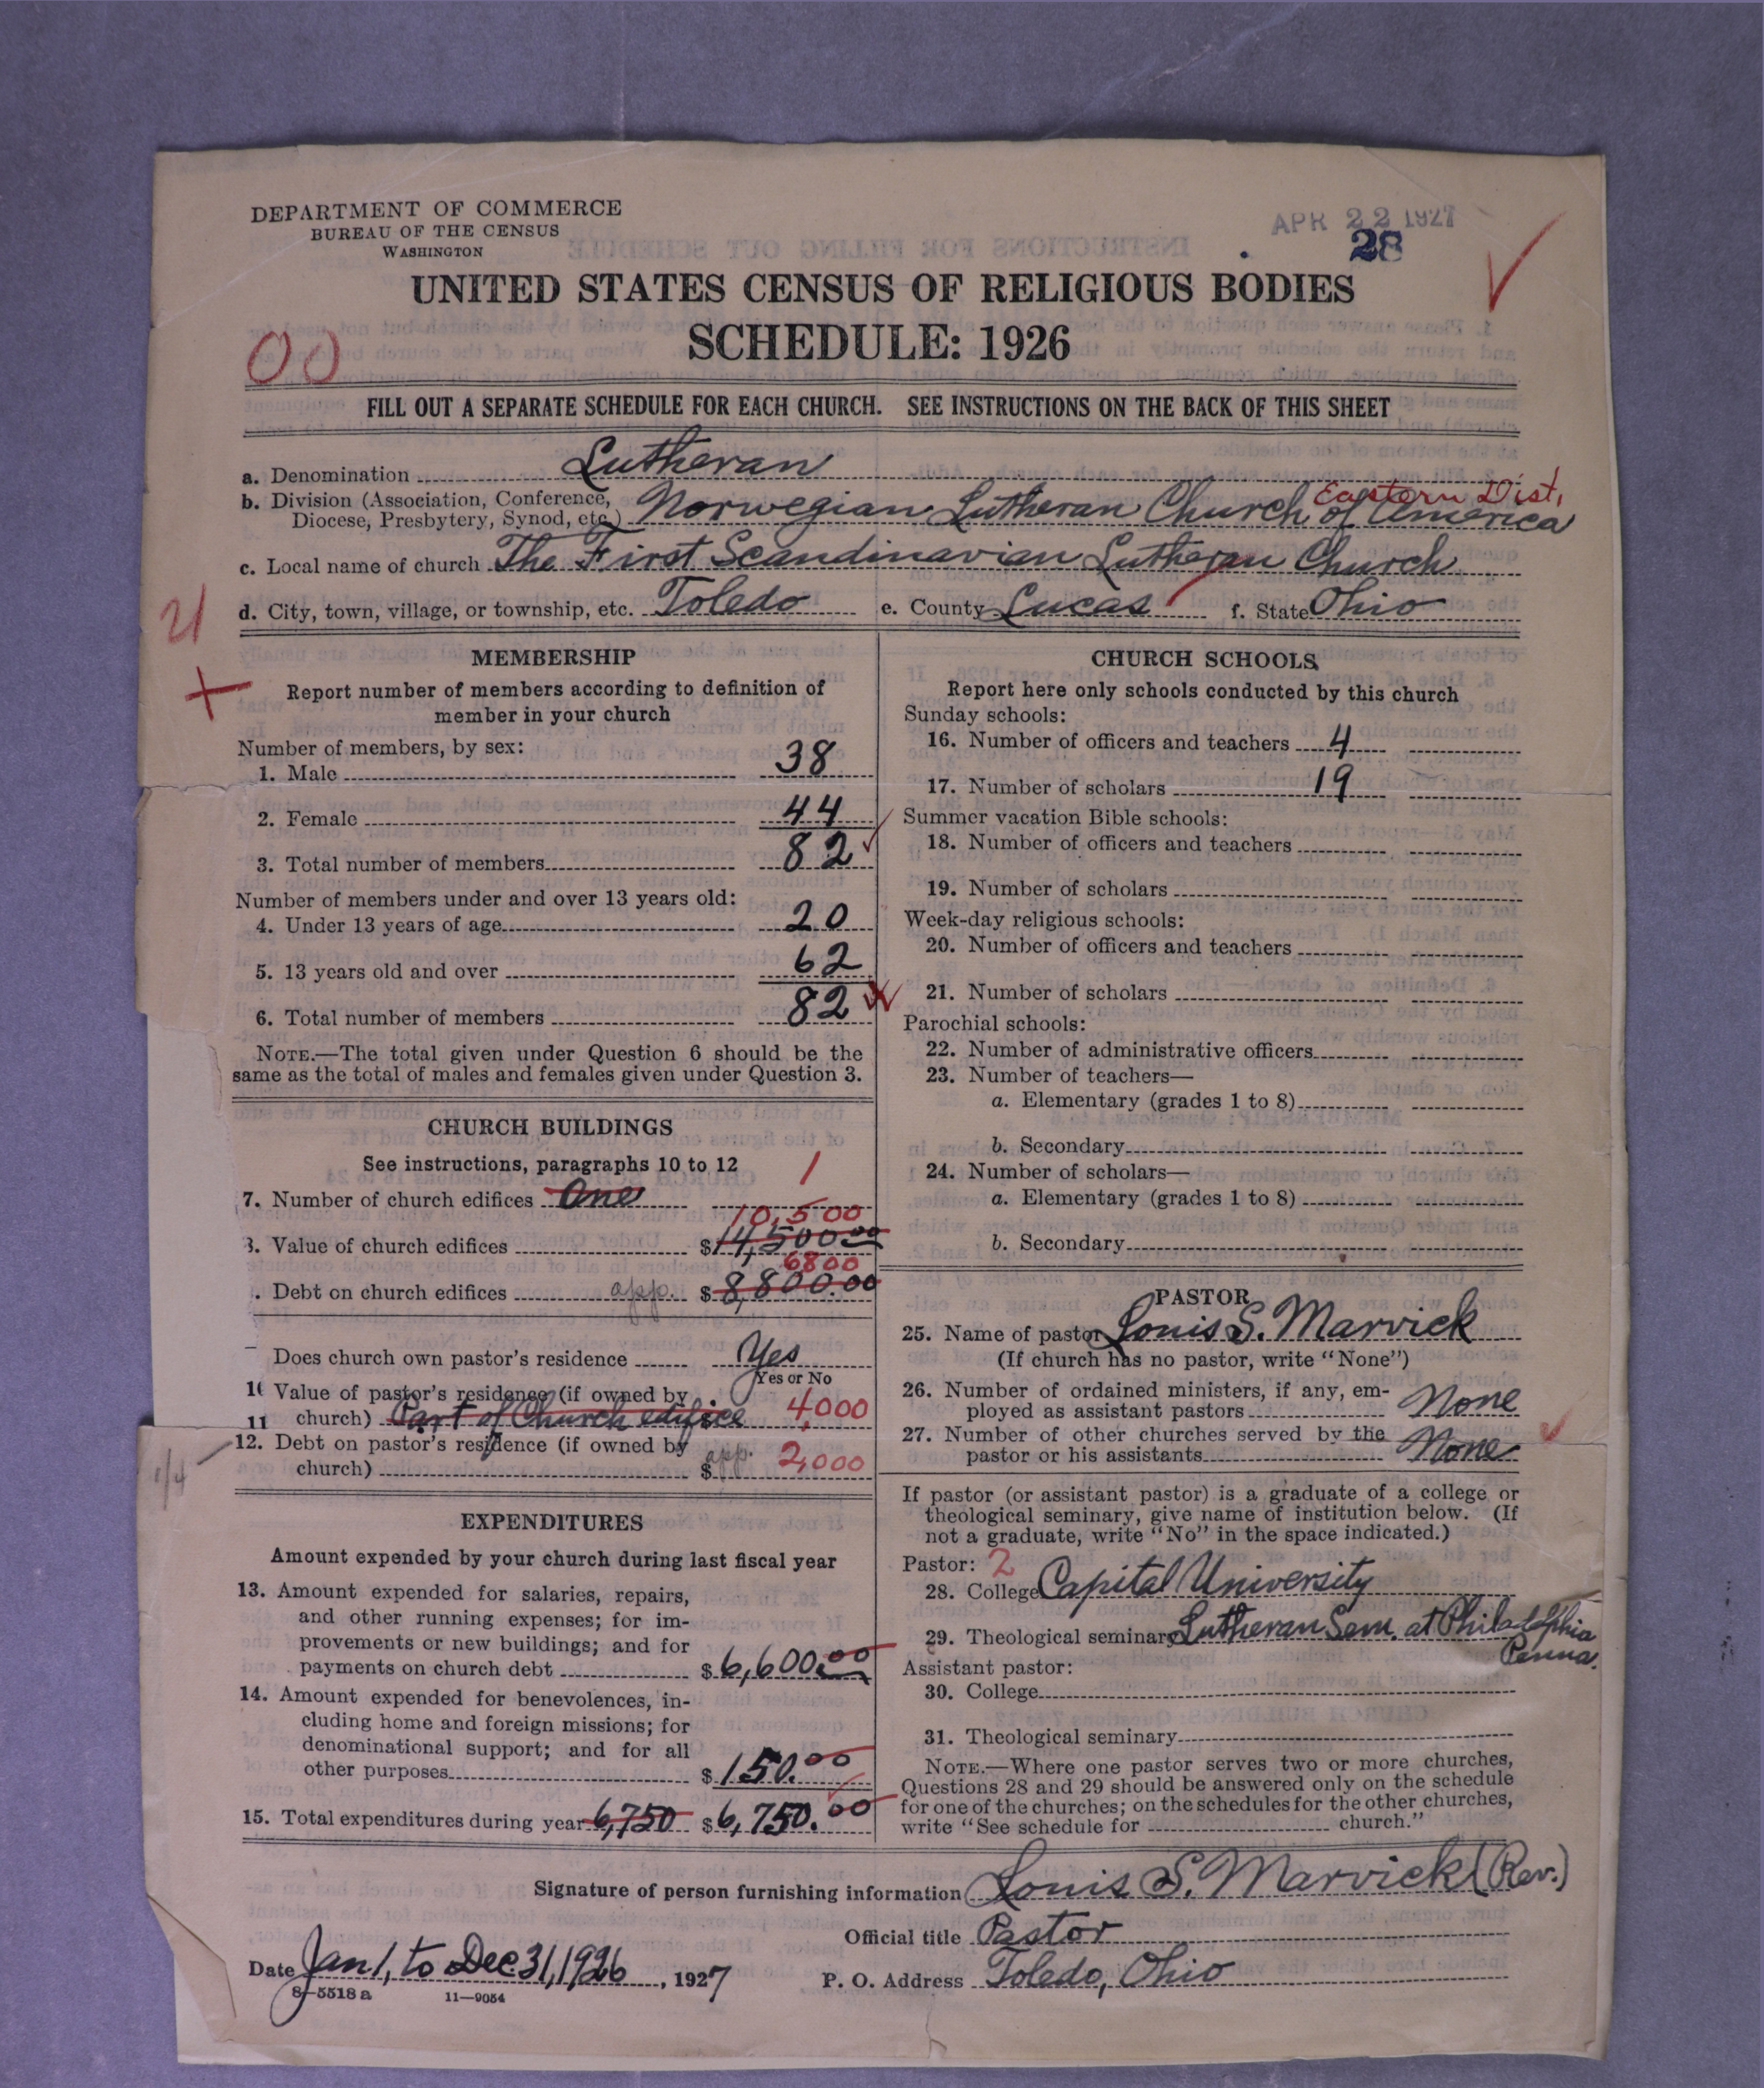 DEPARTMENT OF COMMERCE
BUREAU OF THE CENSUS
WASHINGTON
APR 22 1927
28
UNITED STATES CENSUS OF RELIGIOUS BODIES
SCHEDULE: 1926
00
FILL OUT A SEPARATE SCHEDULE FOR EACH CHURCH. SEE INSTRUCTIONS ON THE BACK OF THIS SHEET
a. Denomination Lutheran
b. Division (Association, Conference, Diocese, Presbytery, Synod, etc.) Norwegian Lutheran Church of America
Eastern Dist.
c. Local name of church The First Scandinavian Lutheran Church
d. City, town, village, or township, etc. Toledo e. County Lucas f. State Ohio
MEMBERSHIP
Report number of members according to definition of
member in your church
Number of members, by sex:
1. Male 38
2. Female 44
3. Total number of members 82
Number of members under and over 13 years old:
4. Under 13 years of age 20
5. 13 years old and over 62
6. Total number of members 82
NOTE.—The total given under Question 6 should be the
same as the total of males and females given under Question 3.
CHURCH BUILDINGS
See instructions, paragraphs 10 to 12
7. Number of church edifices One 1
10,500
8. Value of church edifices $14,500.00
6800
. Debt on church edifices app. $8,800.00
Does church own pastor's residence Yes
Yes or No
Value of pastor's residence (if owned by
11 church) Part of Church edifice 4,000
12. Debt on pastor's residence (if owned by
church) app. $ 2,000
1/4
EXPENDITURES
Amount expended by your church during last fiscal year
13. Amount expended for salaries, repairs,
and other running expenses; for im-
provements or new buildings; and for
payments on church debt $6,600.00
14. Amount expended for benevolences, in-
cluding home and foreign missions; for
denominational support; and for all
other purposes $150.00
15. Total expenditures during year 6,750 $6,750.00
CHURCH SCHOOLS
Report here only schools conducted by this church
Sunday schools:
16. Number of officers and teachers 4
17. Number of scholars 19
Summer vacation Bible schools:
18. Number of officers and teachers
19. Number of scholars
Week-day religious schools:
20. Number of officers and teachers
21. Number of scholars
Parochial schools:
22. Number of administrative officers
23. Number of teachers—
a. Elementary (grades 1 to 8)
b. Secondary
24. Number of scholars—
a. Elementary (grades 1 to 8)
b. Secondary
PASTOR
25. Name of pastor Louis S. Marvick
(If church has no pastor, write "None")
26. Number of ordained ministers, if any, em-
ployed as assistant pastors None
27. Number of other churches served by the
pastor or his assistants None
If pastor (or assistant pastor) is a graduate of a college or
theological seminary, give name of institution below. (If
not a graduate, write "No" in the space indicated.)
Pastor: 2
28. College Capital University
29. Theological seminary Lutheran Sem. at Philadelphia
Penna.
Assistant pastor:
30. College
31. Theological seminary
NOTE.—Where one pastor serves two or more churches,
Questions 28 and 29 should be answered only on the schedule
for one of the churches; on the schedules for the other churches,
write "See schedule for church."
Signature of person furnishing information Louis S. Marvick (Rev.)
Official title Pastor
Date Jan 1, to Dec 31, 1926, 1927 P. O. Address Toledo, Ohio
8—5518 a 11—9054